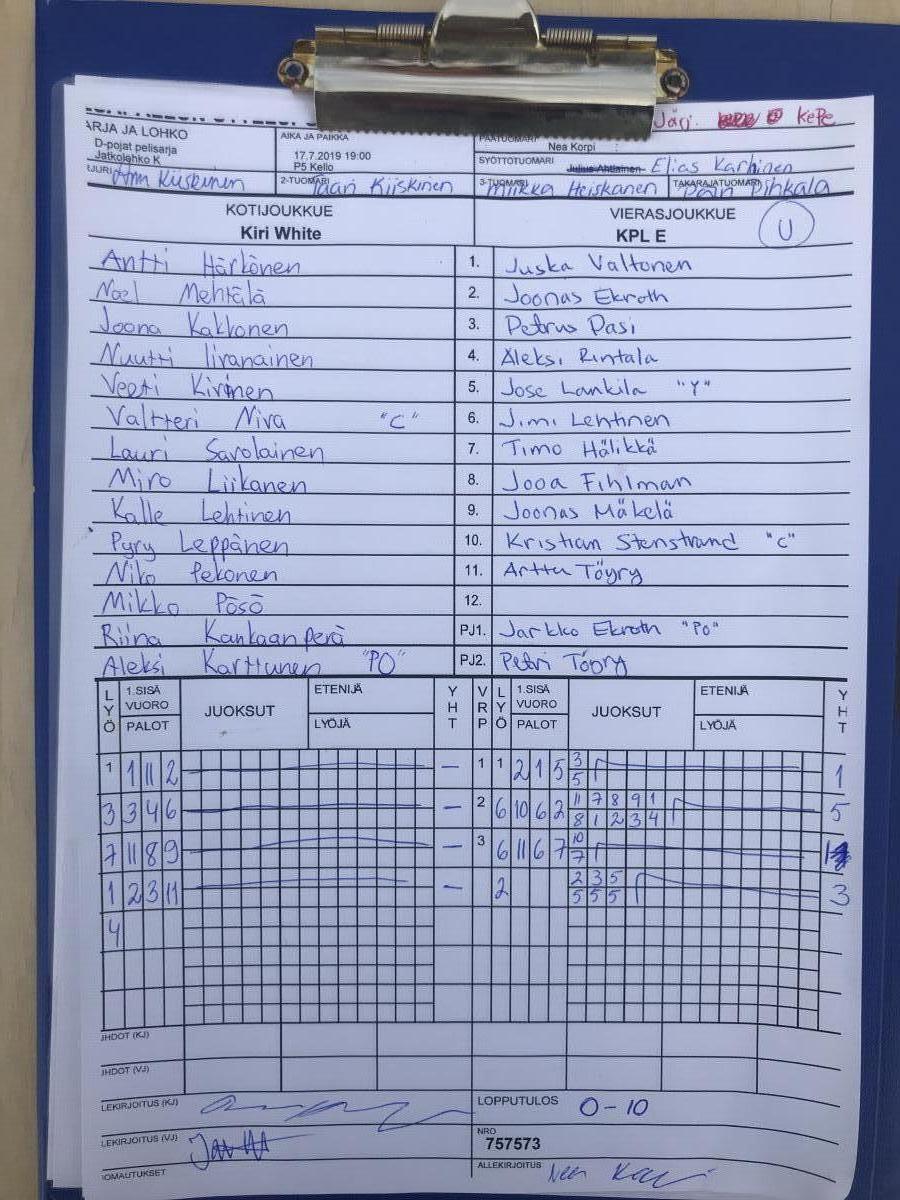 Järj. KePe
ARJA JA LOHKO
D-pojat pelisarja
Jatkolohko K
AIKA JA PAIKKA
17.7.2019 19:00
P5 Kello
PÄÄTUOMARI
Nea Korpi
SYÖTTÖTUOMARI
Julius Ahtiainen Elias Karhinen
2-TUOMARI Kiiskinen
3-TUOMARI Miikka Heiskanen
TAKARAJATUOMARI Pihkala
KOTIJOUKKUE
Kiri White
VIERASJOUKKUE
KPL E
U
Antti Härkönen 1. Juska Valtonen
Noel Mehtälä 2. Joonas Ekroth
Joona Kakkonen 3. Petrus Pasi
Nuutti Iivanainen 4. Aleksi Rintala
Veeti Kivinen 5. Jose Lankila "Y"
Valtteri Niva "C" 6. Jimi Lehtinen
Lauri Savolainen 7. Timo Hälikkä
Miro Liikanen 8. Jooa Fihlman
Kalle Lehtinen 9. Joonas Mäkelä
Pyry Leppänen 10. Kristian Stenstrand "C"
Niko Pekonen 11. Arttu Töyry
Mikko Pösö 12.
Riina Kankaanperä PJ1. Jarkko Ekroth "PO"
Aleksi Karttunen "PO" PJ2. Petri Töyry
LYÖ 1.SISÄ VUORO PALOT JUOKSUT ETENIJÄ LYÖJÄ YHT VRP LYÖ 1.SISÄ VUORO PALOT JUOKSUT ETENIJÄ LYÖJÄ YHT
1 1 11 2 — 1 1 2 1 5 3 1
5
3 3 4 6 — 2 6 10 6 2 11 7 8 9 1 5
8 1 2 3 4
7 11 8 9 — 3 6 11 6 7 10 1
7
1 2 3 11 — 2 2 3 5 3
5 5 5
4
JHDOT (KJ)
JHDOT (VJ)
LEKIRJOITUS (KJ)
LOPPUTULOS 0-10
LEKIRJOITUS (VJ)
NRO
757573
IOMAUTUKSET
ALLEKIRJOITUS Nea Korpi